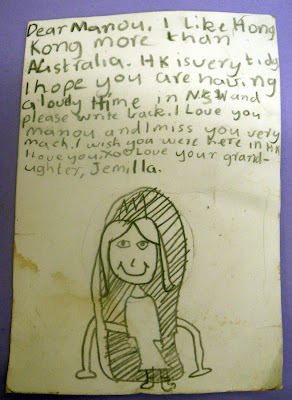 Dear Manou, I Like Hong
Kong more than
Australia. HK is very tidy
I hope you are having
a lovely time in NSW and
please write back. I Love you
manou and I miss you very
mach. I wish you were here in HK
I love you. xoo Love your grand-
ughter, Jemilla.